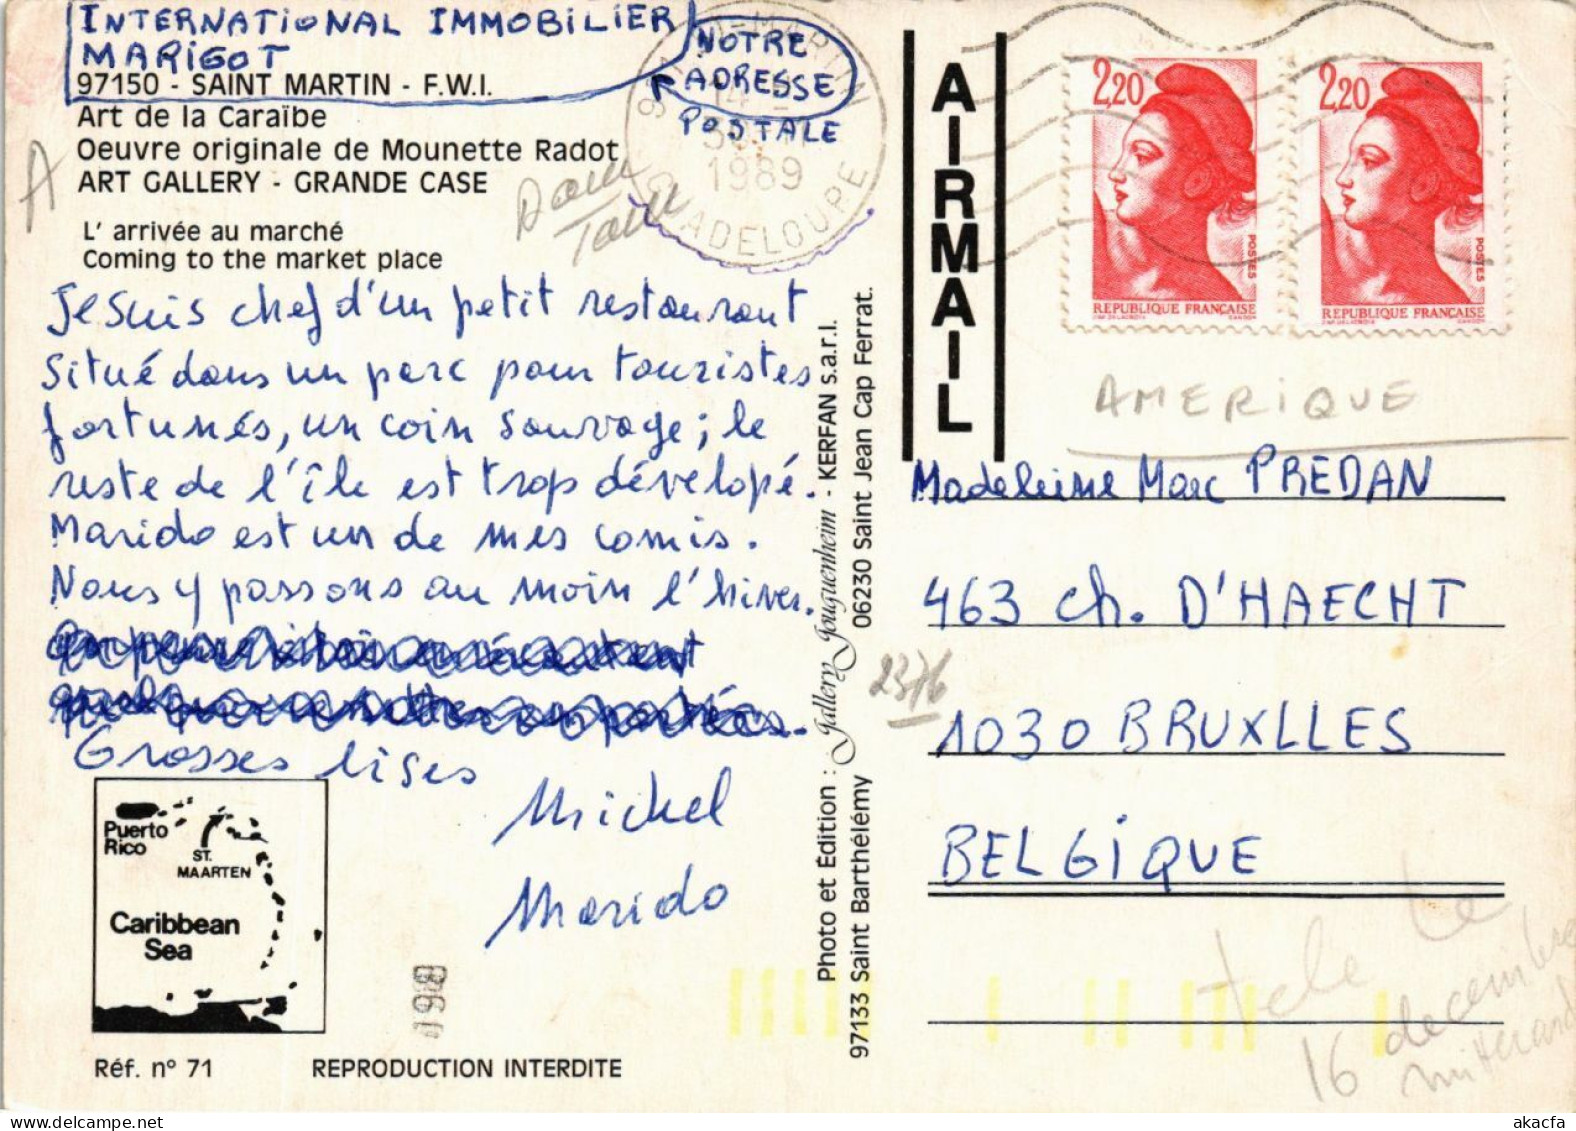 INTERNATIONAL IMMOBILIER
MARIGOT
97150 - SAINT MARTIN - F.W.I.
NOTRE
ADRESSE
POSTALE
Art de la Caraïbe
Oeuvre originale de Mounette Radot
ART GALLERY - GRANDE CASE
L' arrivée au marché
Coming to the market place
A
SAINT-MARTIN
1989
GUADELOUPE
Je suis chef d'un petit restaurant
situé dans un parc pour touristes
fortunés, un coin sauvage; le
reste de l'île est trop dévelopé.
Marido est un de mes comis.
Nous y passons au moin l'hiver.
Grosses lises
Michel
Marido
Puerto
Rico
ST.
MAARTEN
Caribbean
Sea
198
Réf. n° 71
REPRODUCTION INTERDITE
Photo et Edition : Gallery Jouguenheim - KERFAN s.a.r.l.
97133 Saint Barthélémy
06230 Saint Jean Cap Ferrat.
AIRMAIL
2,20
POSTES
REPUBLIQUE FRANÇAISE
2,20
POSTES
REPUBLIQUE FRANÇAISE
AMERIQUE
Madeleine Marc PREDAN
463 ch. D'HAECHT
2376
1030 BRUXLLES
BELGIQUE
tele Le
16 decembre
akacfa